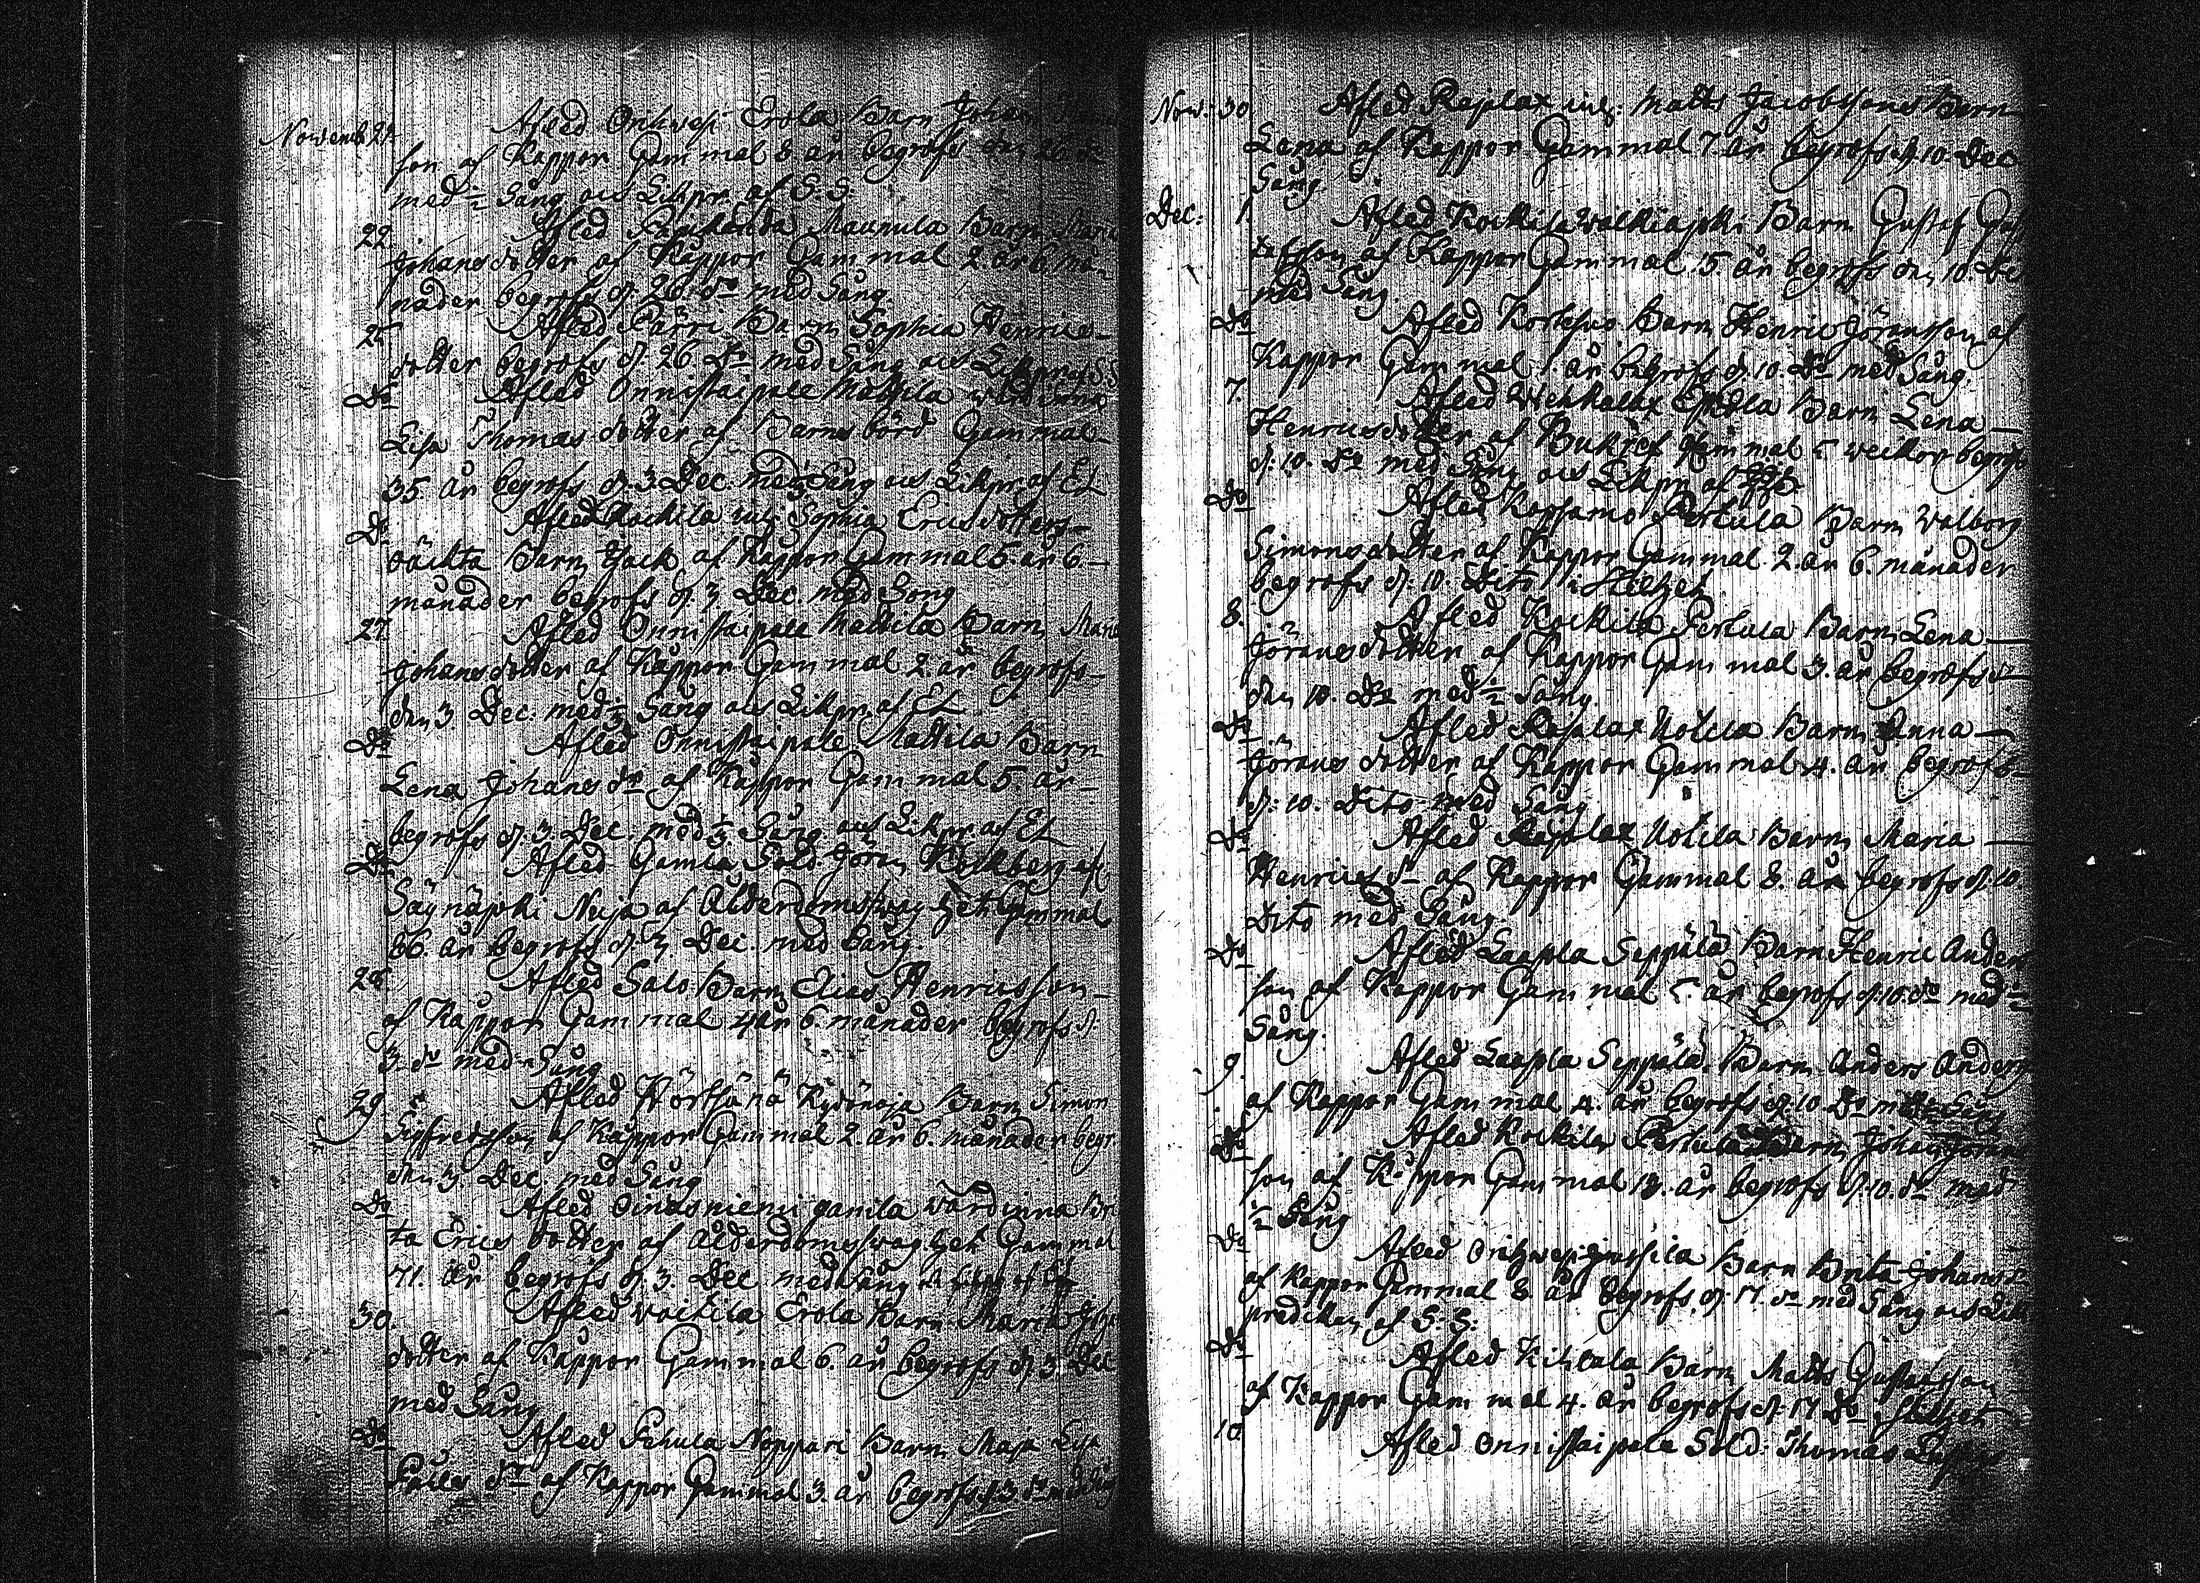 Novemb 21. Afled Onkwesi Erola Barn Johan
son af Kåppor Gammal 8 år begrofs den 26 de
med ½ Sång och Likpr. af S. S:
22. Afled Maunula Barn Maria
Johansdotter af Kåppor Gammal 2. år 6. må-
nader begrofs d. 26. do med Sång.
25 Afled Pärri Barn Sophia Henrics-
dotter begrofs d. 26. Do med Sång och Likpr af S.S
Do Afled Onnistaipale Mattila wärdinna
Lisa Thomas dotter af Barnsbörd Gammal
35 år begrofs d. 3 Dec. med ½ Sång och Likpr. af EL
Do Afled Kockila inh: Sophia Ericsdotters
oächta Barn Jack af Kåppor Gammal 5. år 6.
månader begrofs d. 3 Dec. med Song
27. Afled Onnistaipale Mattila Barn Maria
Johansdotter af Kåppor Gammal 2. år begrofs
den 3 Dec. med ½ Sång och Likpr. af EL
Do Afled Onnistaipale Mattila Barn
Lena Johans dr af Kåppor Gammal 5. år
begrofs d. 3. Dec. med ½ Sång och Likpr af EL
Do Afled Gamla Sold. Jöran
Säynäjoki Neja af Ålderdomsswaghet Gammal
86. år begrofs d. 3 Dec. med Sång.
28 Afled Salo Barn Elias Henricsson
af Kåppor Gammal 4 år 6. månader begrofs d.
3. do med Sång
29 Afled Körtsänä Kydönoja Barn Simon
Sigfredsson af Kåppor Gammal 2. år 6. månader begr.
den 3. Dec. med Sång
Do Afled gamla wärdinna Bri
ta Erics dotter af Ålderdomsswaghet Gammal
71. år begrofs d. 3. Dec med Sång
30. Afled Erola Barn Maria
dotter af Kåppor Gammal 6. år begrofs d. 3 Dec
med Sång
Do Afled Pehula Noppari Barn Maja Lisa
dr af Kåppor Gammal 3. år begrofs d. 3 do med Sång
Nov: 30 Afled Rajalax inh: Matts Jacobssons Barn
Lena af Kåppor Gammal 7. år begrofs d. 10. Dec
Sång
Dec: 1. Afled Kockila Walkiajoki Barn Gustaf Gus
tafsson af Kåppor Gammal 5 år begrofs den 10. De
med Sång.
Do Afled Barn Henric Göransson af
Kåppor Gammal 1 år begrofs d. 10. Do med Sång.
7. Afled Barn Lena
Henricsdotter af Bukref Gammal 5 weckor begrofs
d: 10. Do med Sång och Likpr. af
Do Afled Pertula Barn Walborg
Simonsdotter af Kåppor Gammal. 2. år 6. månader
begrofs d. 10. Dito i Stillhet
8. Afled Kockila Pertula Barn Lena
Göransdotter af Kåppor Gammal 3. år begrofs
den 10. Do med ½ Sång.
Do Afled Rajalax Uotila Barn Anna
Görans dotter af Kåppor Gammal 4. år begrofs
d: 10. Dito med Sång
Do Afled Rajalax Uotila Barn Maria
Henrics dr af Kåppor Gammal 8. år begrofs d. 10
Dito med Sång.
Do Afled Laapla Seppälä Barn Henric Anders
son af Kåppor Gammal 5. år begrofs d. 10. do med ½
Sång.
9. Afled Laapla Seppälä Barn Anders Anders
af Kåppor Gammal 4. år begrofs d. 10 Do med Sång
Do Afled Kockila Pertula Barn Johan Göran
son af Kåppor Gammal år begrofs d. 10. do med
½ Sång
Do Afled Barn Brita Johans dr
af Kåppor Gammal 8. år begrofs d: 17. do med Sång och Lik
predikan af S: S:
Do Afled Kihlala Barn Matts Gustafsson
af Kåppor Gammal 4. år begrofs d. 17 Do i Stillhet
10. Afled Onnistaipale Sold: Thomas